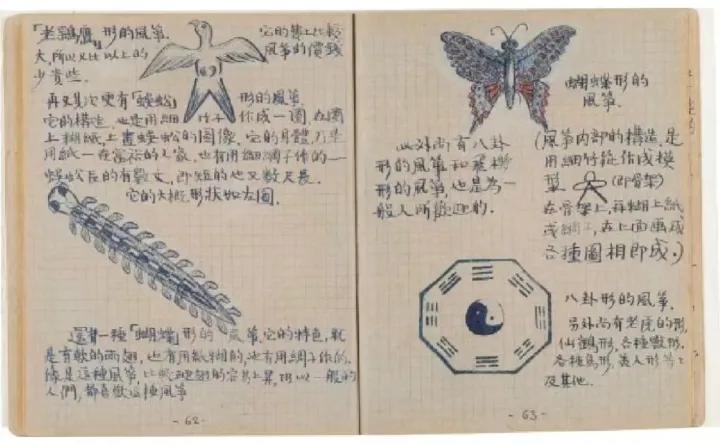 「老鷂鷹」形的風箏.
它的費上比較
大,所以又比以上的
風箏的價錢
少貴些.
再又其次更有「蜈蚣」形的風箏.
它的構造,也是用細竹子作成一圈,在圈
上糊紙,上畫蜈蚣的圖像,它的身體,乃是
用紙一在富族的人家,也有用細綢子作的一
蜈蚣長的有數丈,即短的也又數尺長.
它的大概形狀如左圖.
還有一種「蝴蝶」形的風箏,它的特色,就
是有軟的兩翅,也有用紙糊的,也有用綢子作的,
像是這種風箏,比較的容易上昇,所以一般的
人們,都喜歡這種風箏
-62-
蝴蝶形的
風箏.
此外尚有八卦
形的風箏和
形的風箏,也是為一
般人所歡迎的.
(風箏內部的構造,是
用細竹從作成模
型
(即骨架)
在骨架上,再糊上紙,
或綢子,在上面畫成
各種圖相即成.)
八卦形的風箏.
另外尚有老虎的形,
仙鶴形,各種獸形,
各種鳥形,美人形等
及其他.
-63-